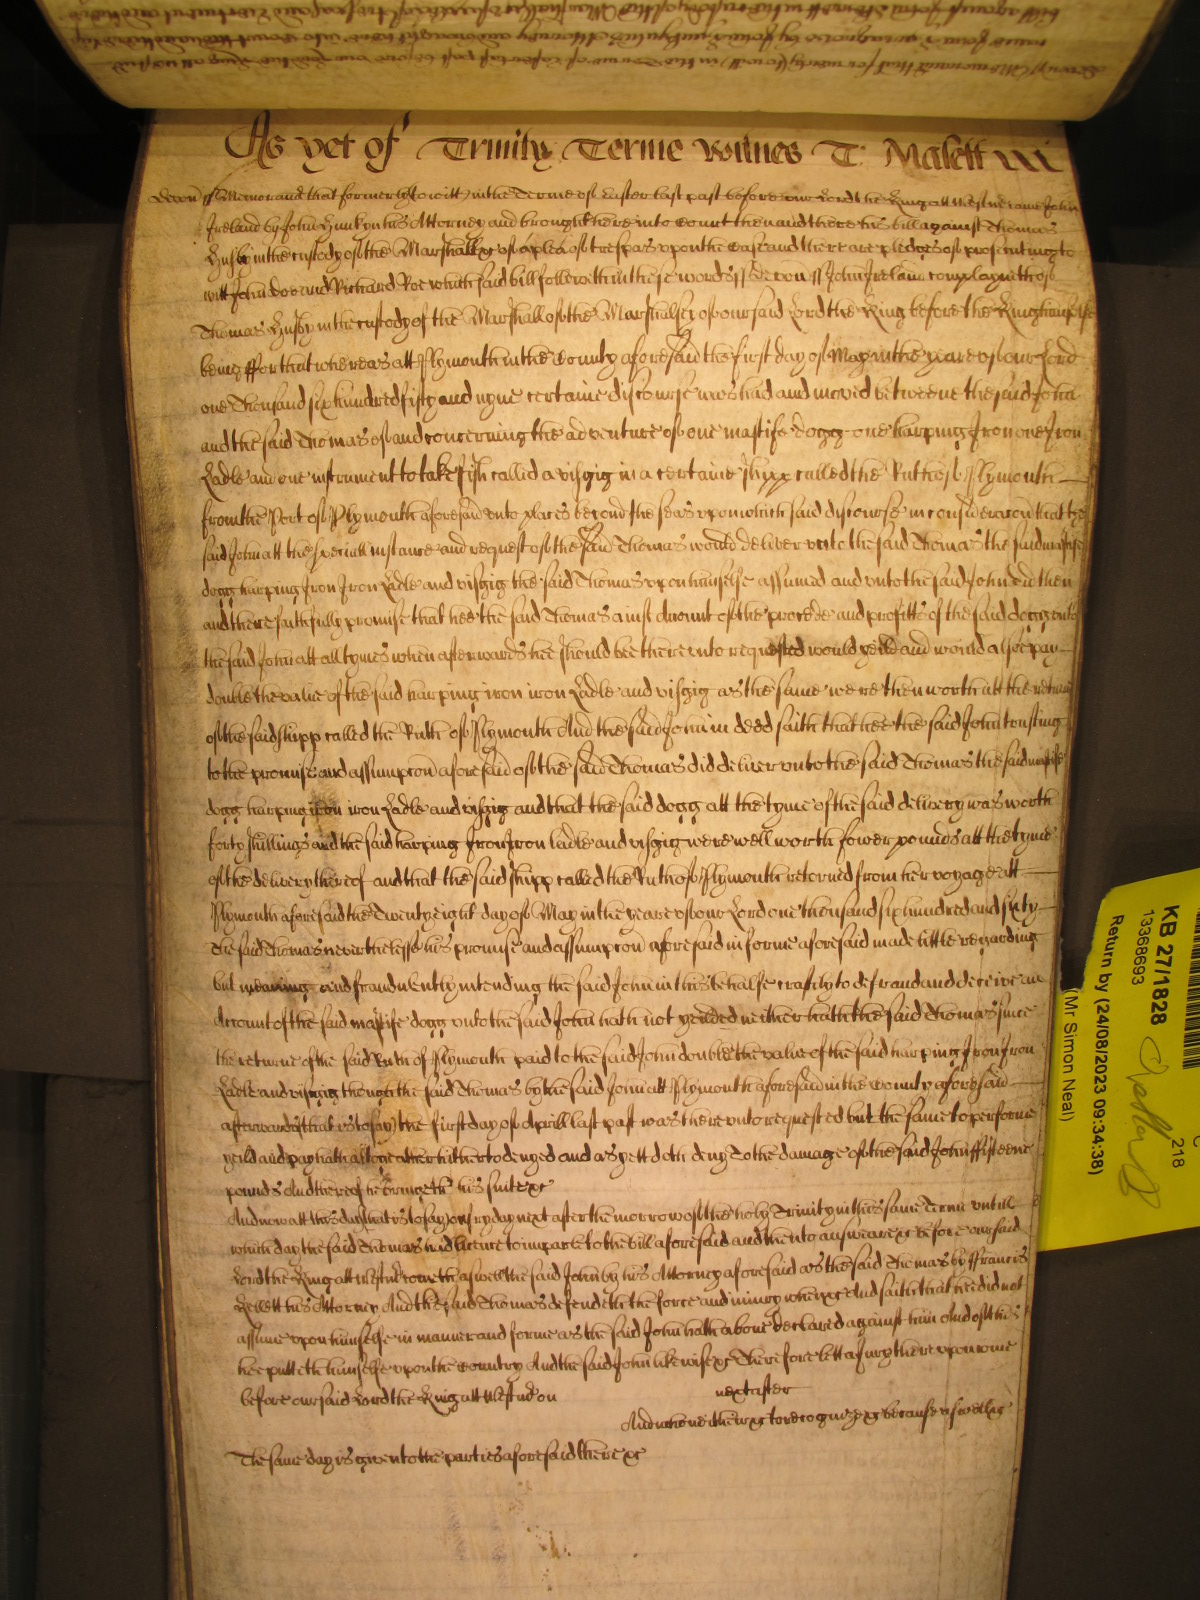 As yet of Trinity Terme Witnes T: Malett
Devon ss Memorand that formerly (to witt) in the Terme of Easter last past before our Lord the King att Westm came John
Ireland by John Hunkyn his Attorney and brought here into Court then and there his bill against Thomas
in the custody of the Marshall &c of a plea of trespas upon the Case and there are pledges of prosecuting to
witt John Doe and Richard Roe which said bill followeth in these words ss Devon ss John Ireland complayneth of
Thomas in the custody of the Marshall of the Marshalsey of our said Lord the King before the King himselfe
being ffor that whereas att Plymouth in the County aforesaid the first day of May in the yeare of our Lord
one Thousand six hundred fifty and nyne certaine discourse was had and moved betweene the said John
and the said Thomas of and concerning the adventure of one mastife dogg one harping Iron one Iron
Ladle and one instrument to take fish called a visgig in a certaine shipp called the Ruth of Plymouth
from the Port of Plymouth aforesaid unto places beyond the seas upon which said discourse in consideracon that the
said John att the speciall instance and request of the said Thomas would deliver unto the said Thomas the said mastife
dogg harping Iron Iron Ladle and visgig the said Thomas upon himselfe assumed and unto the said John did then
and there faithfully promise that hee the said Thomas a iust Account of the proceede and profitts of the said dogg unto
the said John att all tymes when afterwards hee should bee thereunto requested would yeild and would alsoe pay
double the value of the said harping iron iron Ladle and visgig as the same were then worth att the returne
of the said shipp called the Ruth of Plymouth And the said John in deed saith that hee the said John trusting
to the promise and assumpcon aforesaid of the said Thomas did deliver unto the said Thomas the said mastife
dogg harping iron iron Ladle and visgig and that the said dogg att the tyme of the said delivery was worth
forty shillings and the said harping Iron Iron ladle and visgig were well worth fower pounds att the tyme
of the delivery thereof and that the said shipp called the Ruth of Plymouth returned from her voyage att
Plymouth aforesaid the Twenty eight day of May in the yeare of our Lord one thousand six hundred and sixty
The said Thomas neverthelesse his promise and assumpcon aforesaid in forme aforesaid made little regarding
but meaning and fraudulently intending the said John in this behalfe craftily to defraud and deceive an
Account of the said mastife dogg unto the said John hath not yeilded neither hath the said Thomas since
the returne of the said Ruth of Plymouth paid to the said John double the value of the said harping Iron Iron
Ladle and visgig though the said Thomas by the said John att Plymouth aforesaid in the County aforesaid
afterwards (that is to say) the first day of Aprill last past was thereunto requested but the same to performe
yeild and pay hath altogeather hitherto denyed and as yett doth deny To the damage of the said John ffifteene
pounds And thereof he bringeth his suite &c
And now att this day (that is to say) on fryday next after the morrow of the holy Trinity in this same Terme untill
which day the said Thomas had licence to imparle to the bill aforesaid and then to answeare &c before our said
Lord the King att Westm cometh aswell the said John by his Attorney aforesaid as the said Thomas by ffrancis
his Attorney And the said Thomas defendeth the force and iniury when &c And saith that hee did not
assume upon himselfe in manner and forme as the said John hath above declared against him And of this
hee putteth himselfe upon the Country And the said John likewise &c Therefore lett a Jury thereupon come
before our said Lord the King att Westm on next after
And who neither &c to recognize &c because aswell &c
The same day is given to the parties aforesaid there &c
KB 27/1828
1368693
Return by (24/08/2023 09:34:38)
(Mr Simon Neal)
218